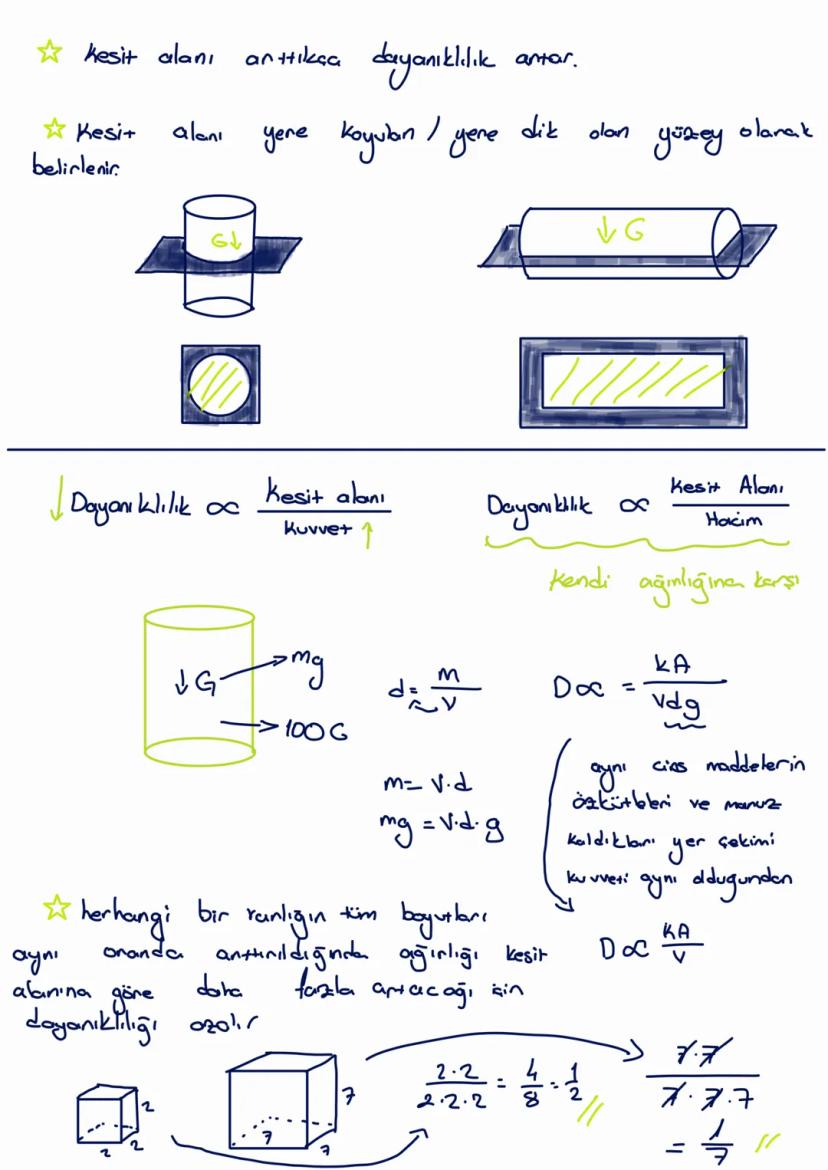 Kesit alanı arttıkça dayanıklılık artar.
Kesit alanı yere koyulan / yere dik olan yüzey olarak
belirlenir.
G↓
↓ G
↓ Dayanıklılık ∝ Kesit alanı / Kuvvet ↑
Dayanıklılık ∝ Kesit Alanı / Hacim
Kendi ağırlığına karşı
↓G → mg
→ 100 G
d = m / v
m = v.d
mg = v.d.g
D ∝ = kA / Vdg
aynı cins maddelerin
özkütleleri ve maruz
kaldıkları yer çekimi
kuvveti aynı olduğundan
D ∝ kA / V
herhangi bir varlığın tüm boyutları
aynı oranda arttırıldığında ağırlığı kesit
alanına göre daha fazla artacağı için
dayanıklılığı azalır
2
2
2
7
7
7
2.2 / 2.2.2 = 4 / 8 = 1 / 2
7.7 / 7.7.7
= 1 / 7